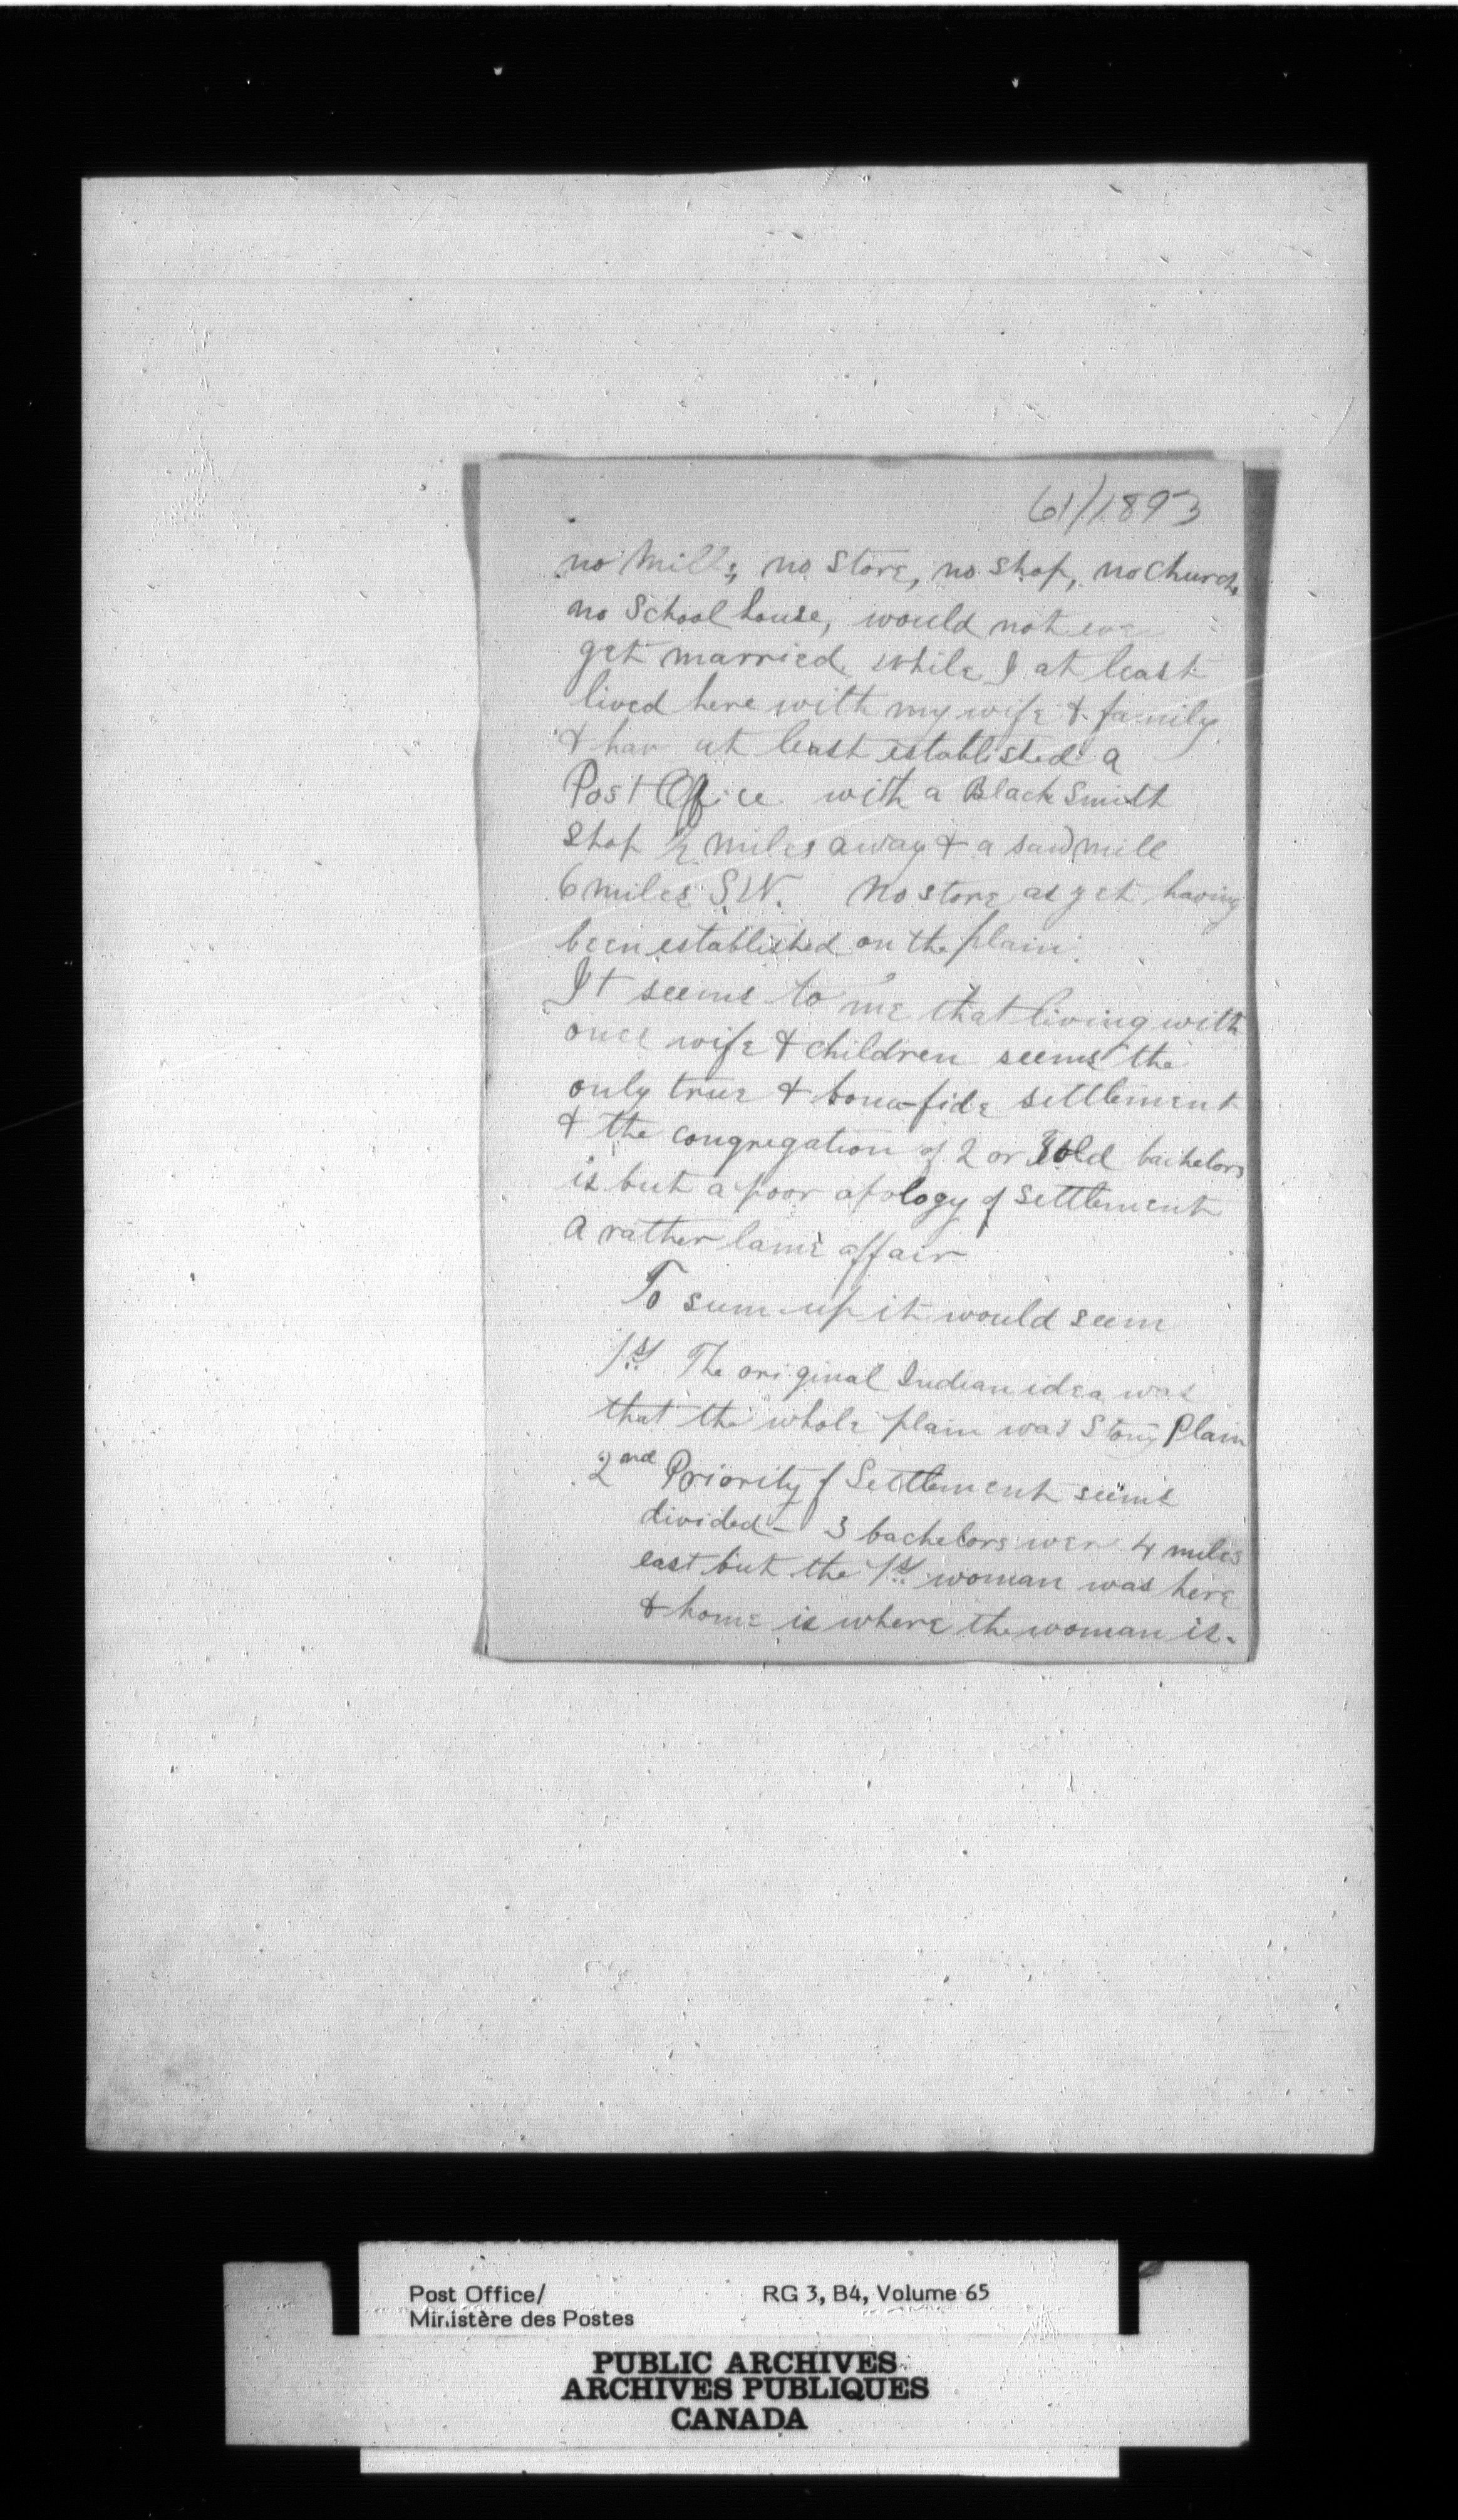 61/1893
no Mills, no store, no shop, no Church,
no School house, would not even
get married while I at least
lived here with my wife & family
& hav at least established a
Post Office with a Black Smith
shop ½ miles away & a saw mill
6 miles S.W. No store as yet having
been established on the plain.
It seems to me that living with
ones wife & children seems the
only true & bona-fide settlement
& the congregation of 2 or 3 old bachelors
is but a poor apology of settlement
a rather lame affair
To sum up it would seem
1st The original Indian idea was
that the whole plain was Stony Plain
2nd Priority of Settlement seems
divided - 3 bachelors wer 4 miles
east but the 1st woman was here
& home is where the woman is.
Post Office/
Ministère des Postes
RG 3, B4, Volume 65
PUBLIC ARCHIVES
ARCHIVES PUBLIQUES
CANADA